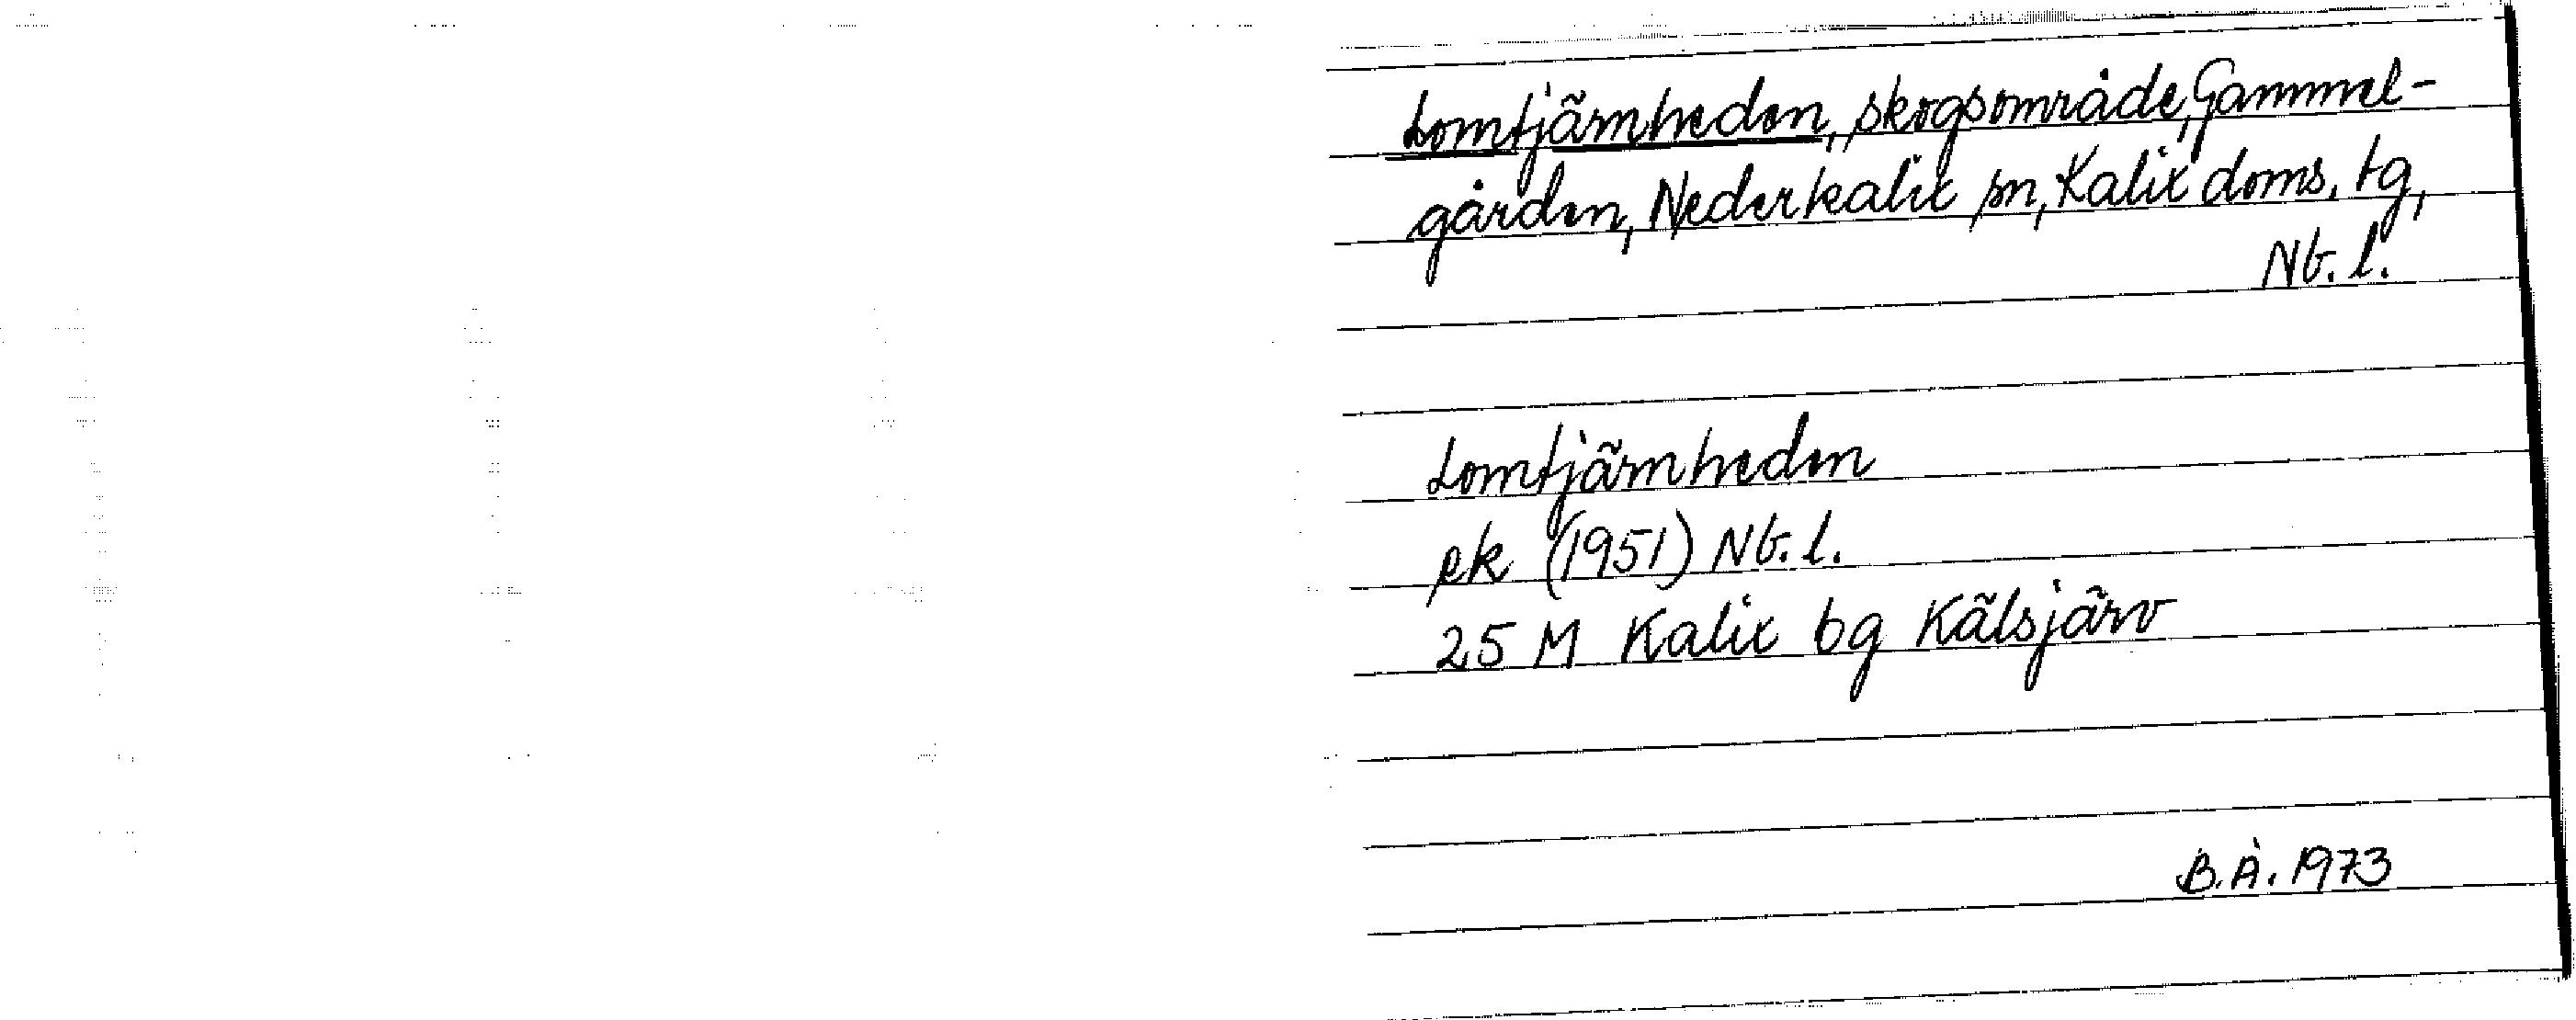 Lomtjärnheden, skogsområde, Gammel-
gården, Nederkalix sn, Kalix doms. tg,
Nb. l.
Lomtjärnheden
ek (1951) Nb. l.
25 M Kalix bg Kälsjärv
B.Å. 1973